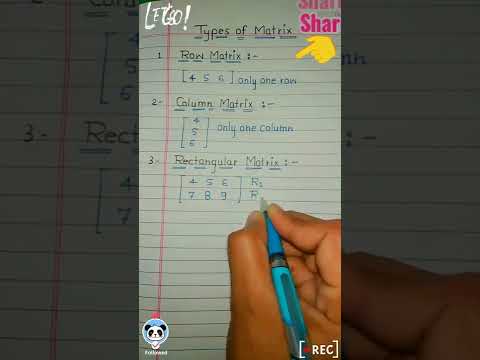 LET'S GO!
Types of Matrix
Share
Shar
1 Row Matrix :-
[ 4 5 6 ] only one row
2- Column Matrix :-
4
5 only one column
6
3- Rectangular Matrix :-
4 5 6 R₁
7 8 9 R
Followed
[• REC]